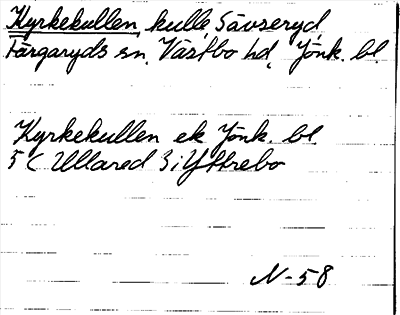 Kyrkekullen, kulle, Sävseryd,
Färgaryds sn, Västbo hd, Jönk. bl.
Kyrkekullen ek Jönk. bl.
5 C Ullared 3; Yttrebo
N-58